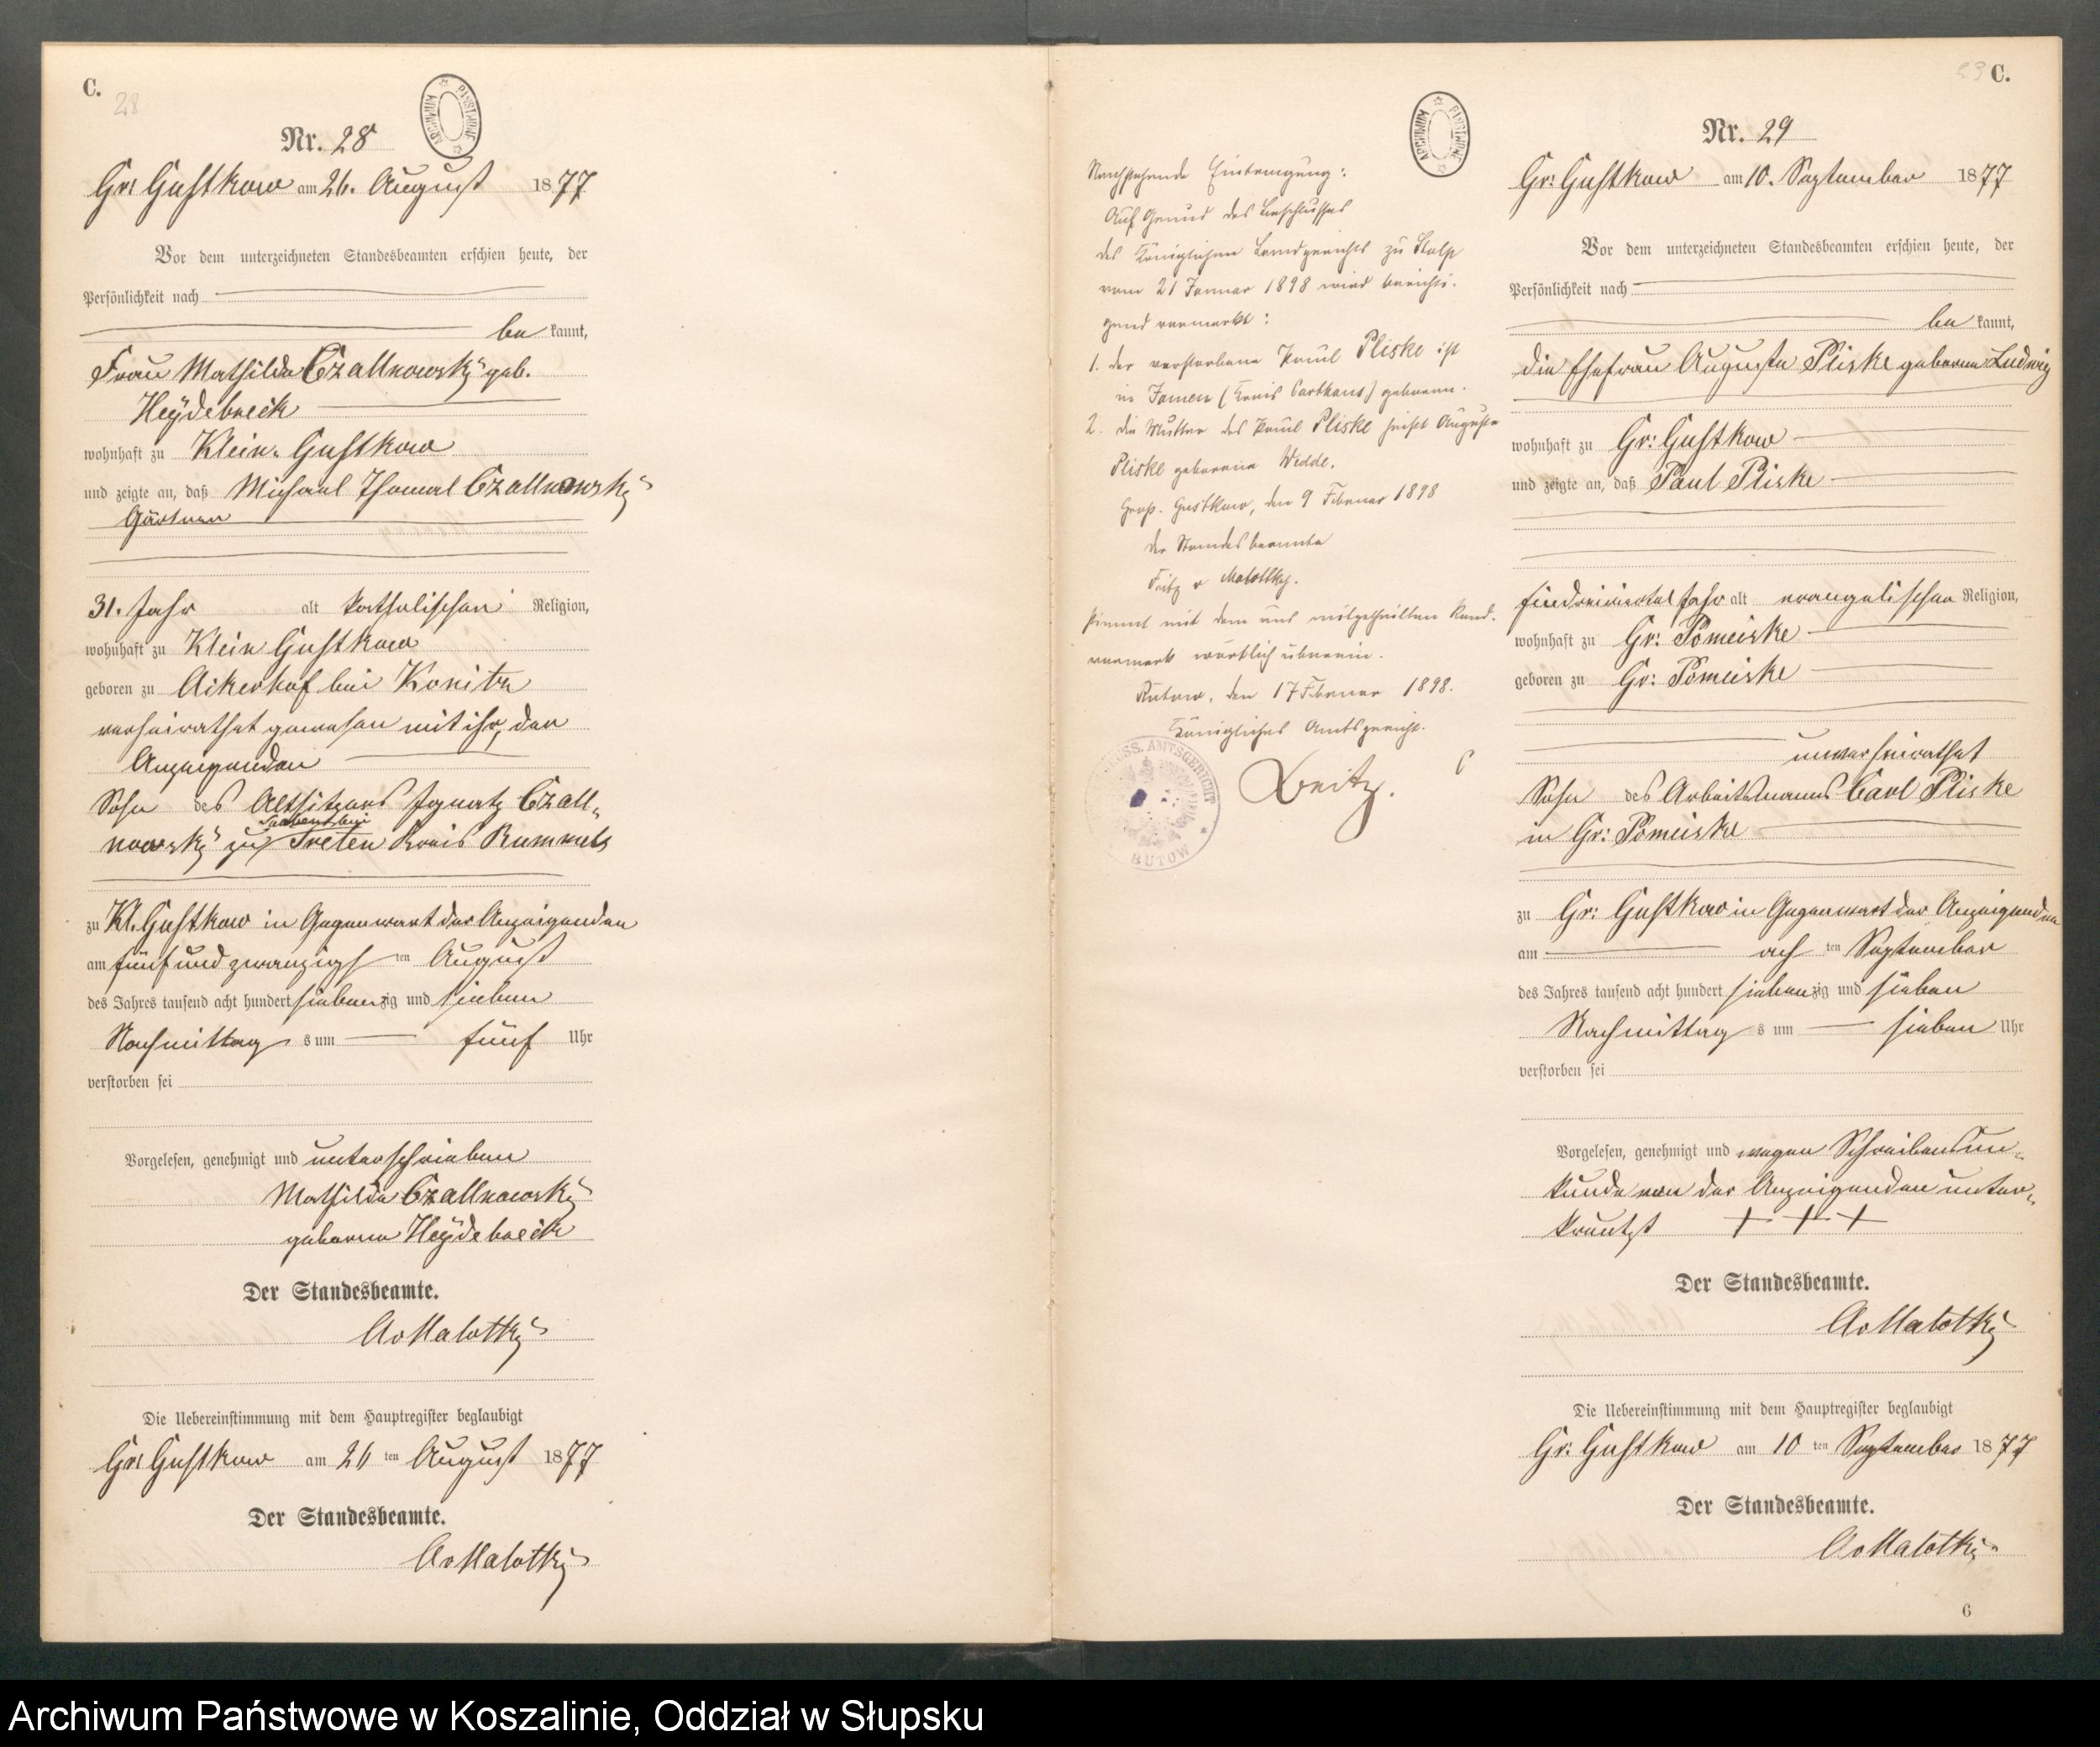 C.
28
Nr. 28
ARCHIWUM PAŃSTWOWE
Gr: Gustkow am 26. August 1877
Vor dem unterzeichneten Standesbeamten erschien heute, der
Persönlichkeit nach
be kannt,
Frau Mathilde Czallnowsky geb.
Heydebreck
wohnhaft zu Klein-Gustkow
und zeigte an, daß Michael Thomas Czallnowsky
Gärtner
31. Jahr alt katholischen Religion,
wohnhaft zu Klein Gustkow
geboren zu Ackerhof bei Konitz
verheirathet gewesen mit ihr, der
Anzeigenden
Sohn des Altsitzers Ignatz Czall-
nowsky zu Treten Kreis Rummels
zu Kl. Gustkow in Gegenwart der Anzeigenden
am fünf und zwanzigsten August
des Jahres tausend acht hundert siebenzig und sieben
Nachmittag s um fünf Uhr
verstorben sei
Vorgelesen, genehmigt und unterschrieben
Mathilde Czallnowsky
geborene Heydebreck
Der Standesbeamte.
AvMalottky
Die Uebereinstimmung mit dem Hauptregister beglaubigt
Gr: Gustkow am 26 ten August 1877
Der Standesbeamte.
AvMalottky
ARCHIWUM PAŃSTWOWE
Nachstehende Eintragung:
Auf Grund des Beschlusses
des Königlichen Landgerichts zu Stolp
vom 21 Januar 1898 wird berichti-
gend vermerkt:
1. der verstorbene Paul Pliske ist
in Jamen (Kreis Carthaus) geboren.
2. die Mutter des Paul Pliske heißt Auguste
Pliske geborene Wedde.
Groß-Gustkow, den 9 Februar 1898
Der Standesbeamte
Fritz v Malottky.
stimmt mit dem uns mitgetheilten Rand-
vermerk wörtlich überein.
Bütow, den 17 Februar 1898.
Königliches Amtsgericht.
PREUSS. AMTSGERICHT
BÜTOW
29 C.
Nr. 29
Gr: Gustkow am 10. September 1877
Vor dem unterzeichneten Standesbeamten erschien heute, der
Persönlichkeit nach
be kannt,
die Ehefrau Auguste Pliske geborene Ludwig
wohnhaft zu Gr: Gustkow
und zeigte an, daß Paul Pliske
Eindreiviertel Jahr alt evangelischen Religion,
wohnhaft zu Gr: Pomeiske
geboren zu Gr: Pomeiske
unverheirathet
Sohn des Arbeitsmanns Carl Pliske
in Gr: Pomeiske
zu Gr: Gustkow in Gegenwart der Anzeigenden
am ach ten September
des Jahres tausend acht hundert siebenzig und sieben
Nachmittag s um sieben Uhr
verstorben sei
Vorgelesen, genehmigt und wegen Schreibensun-
kunde von der Anzeigenden unter-
kreutzt + + +
Der Standesbeamte.
AvMalottky
Die Uebereinstimmung mit dem Hauptregister beglaubigt
Gr: Gustkow am 10 ten September 1877
Der Standesbeamte.
AvMalottky
6
Archiwum Państwowe w Koszalinie, Oddział w Słupsku